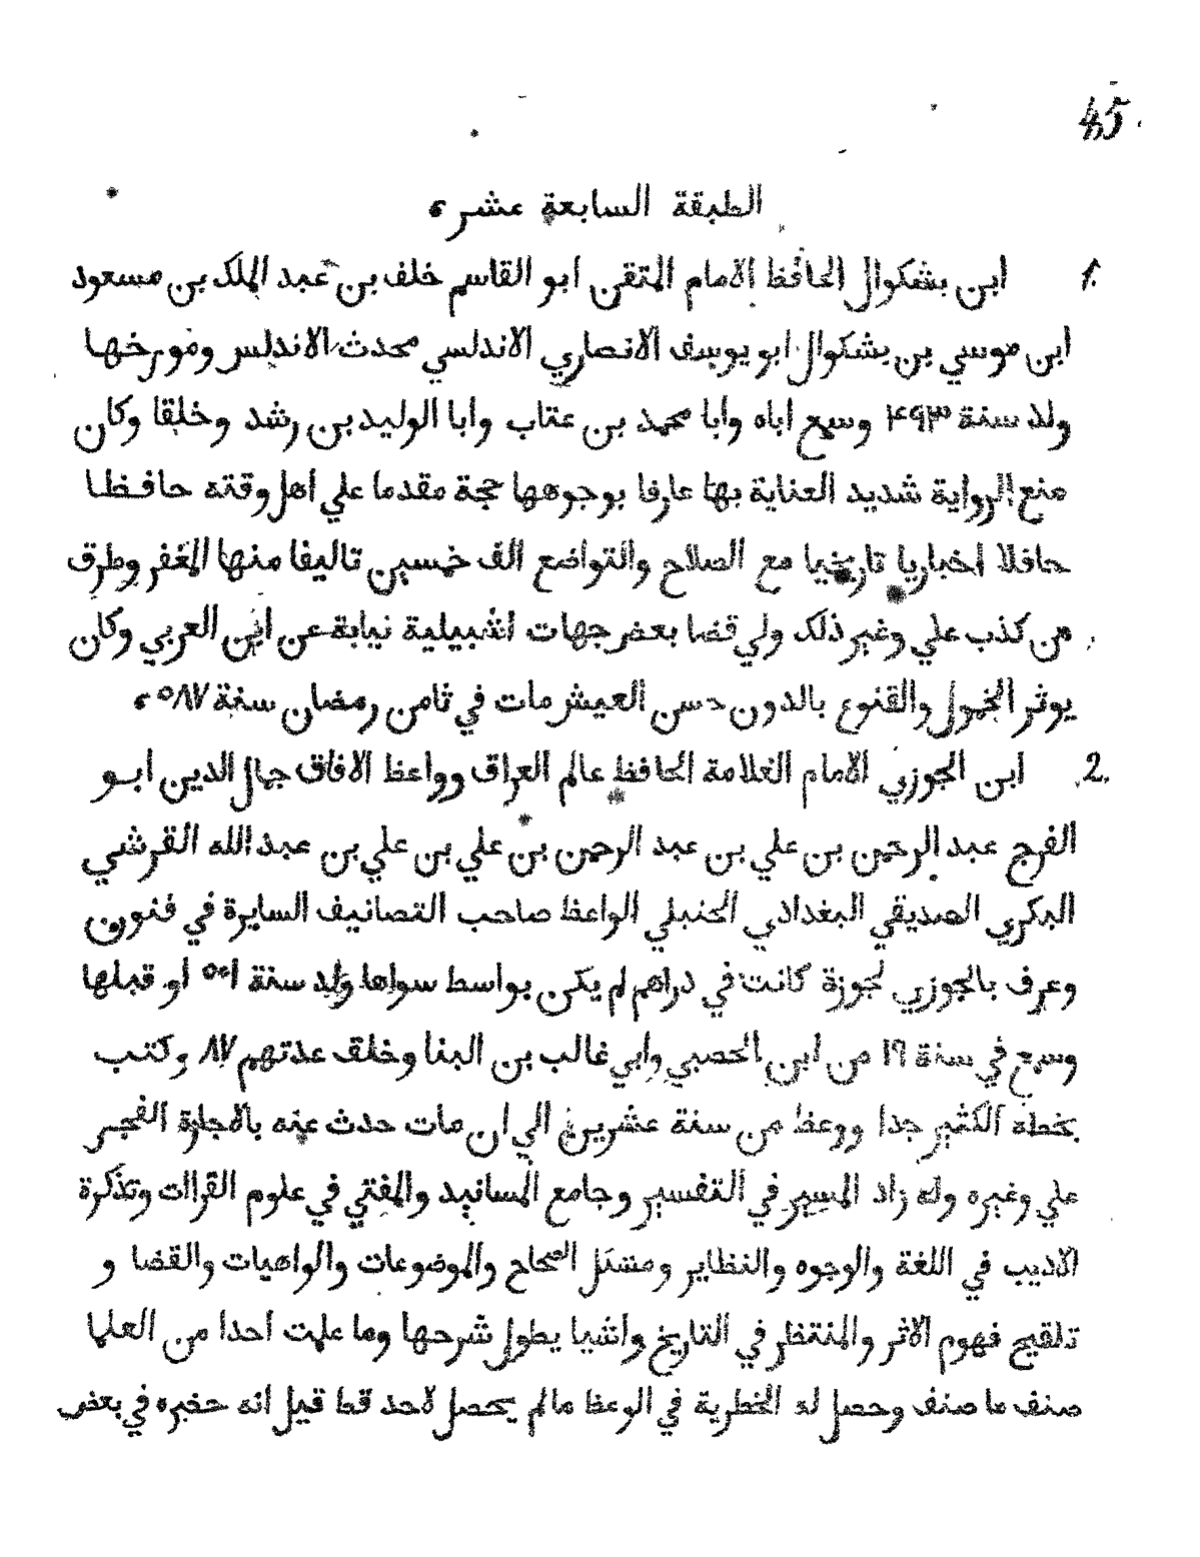 45.
الطبقة السابعة عشر
1. ابن بشكوال الحافظ الامام المتقن ابو القاسم خلف بن عبد الملك بن مسعود
ابن موسي بن بشكوال ابو يوسف الانصاري الاندلسي محدث الاندلس ومورخها
ولد سنة ۴۹۳ وسمع اباه وابا محمد بن عتاب وابا الوليد بن رشد وخلقا وكان
منع الرواية شديد العناية بها عارفا بوجوهها حجة مقدما علي اهل وقته حافظا
حافلا اخباريا تاريخيا مع الصلاح والتواضع الف خمسين تاليفا منها الغفر وطرق
من كذب علي وغير ذلك ولي قضا بعض جهات اشبيلية نيابة عن ابن العربي وكان
يوثر الخمول والقنوع بالدون حسن العيش مات في ثامن رمضان سنة ٥٨٧
2. ابن الجوزي الامام العلامة الحافظ عالم العراق وواعظ الافاق جمال الدين ابو
الفرج عبد الرحمن بن علي بن عبد الرحمن بن علي بن علي بن عبد الله القرشي
البكري الصديقي البغدادي الحنبلي الواعظ صاحب التصانيف السايرة في فنون
وعرف بالجوزي لجوزة كانت في دراهم لم يكن بواسط سواها ولد سنة ٥٠١ او قبلها
وسمع في سنة ١٦ من ابن الحصبي وابي غالب بن البنا وخلق عدتهم ٨٧ وكتب
بخطه الكثير جدا ووعظ من سنة عشرين الي ان مات حدث عنه بالاجازة الفجر
علي وغيره وله زاد المسير في التفسير وجامع المسانيد والمفتي في علوم القراات وتذكرة
الاديب في اللغة والوجوه والنظاير ومشكل الصحاح والموضوعات والواهيات والقضا و
تلقيح فهوم الاثر والمنتظر في التاريخ واشيا يطول شرحها وما علمت احدا من العلما
صنف ما صنف وحصل له الخطرية في الوعظ مالم يحصل لاحد قط قيل انه حضره في بعض